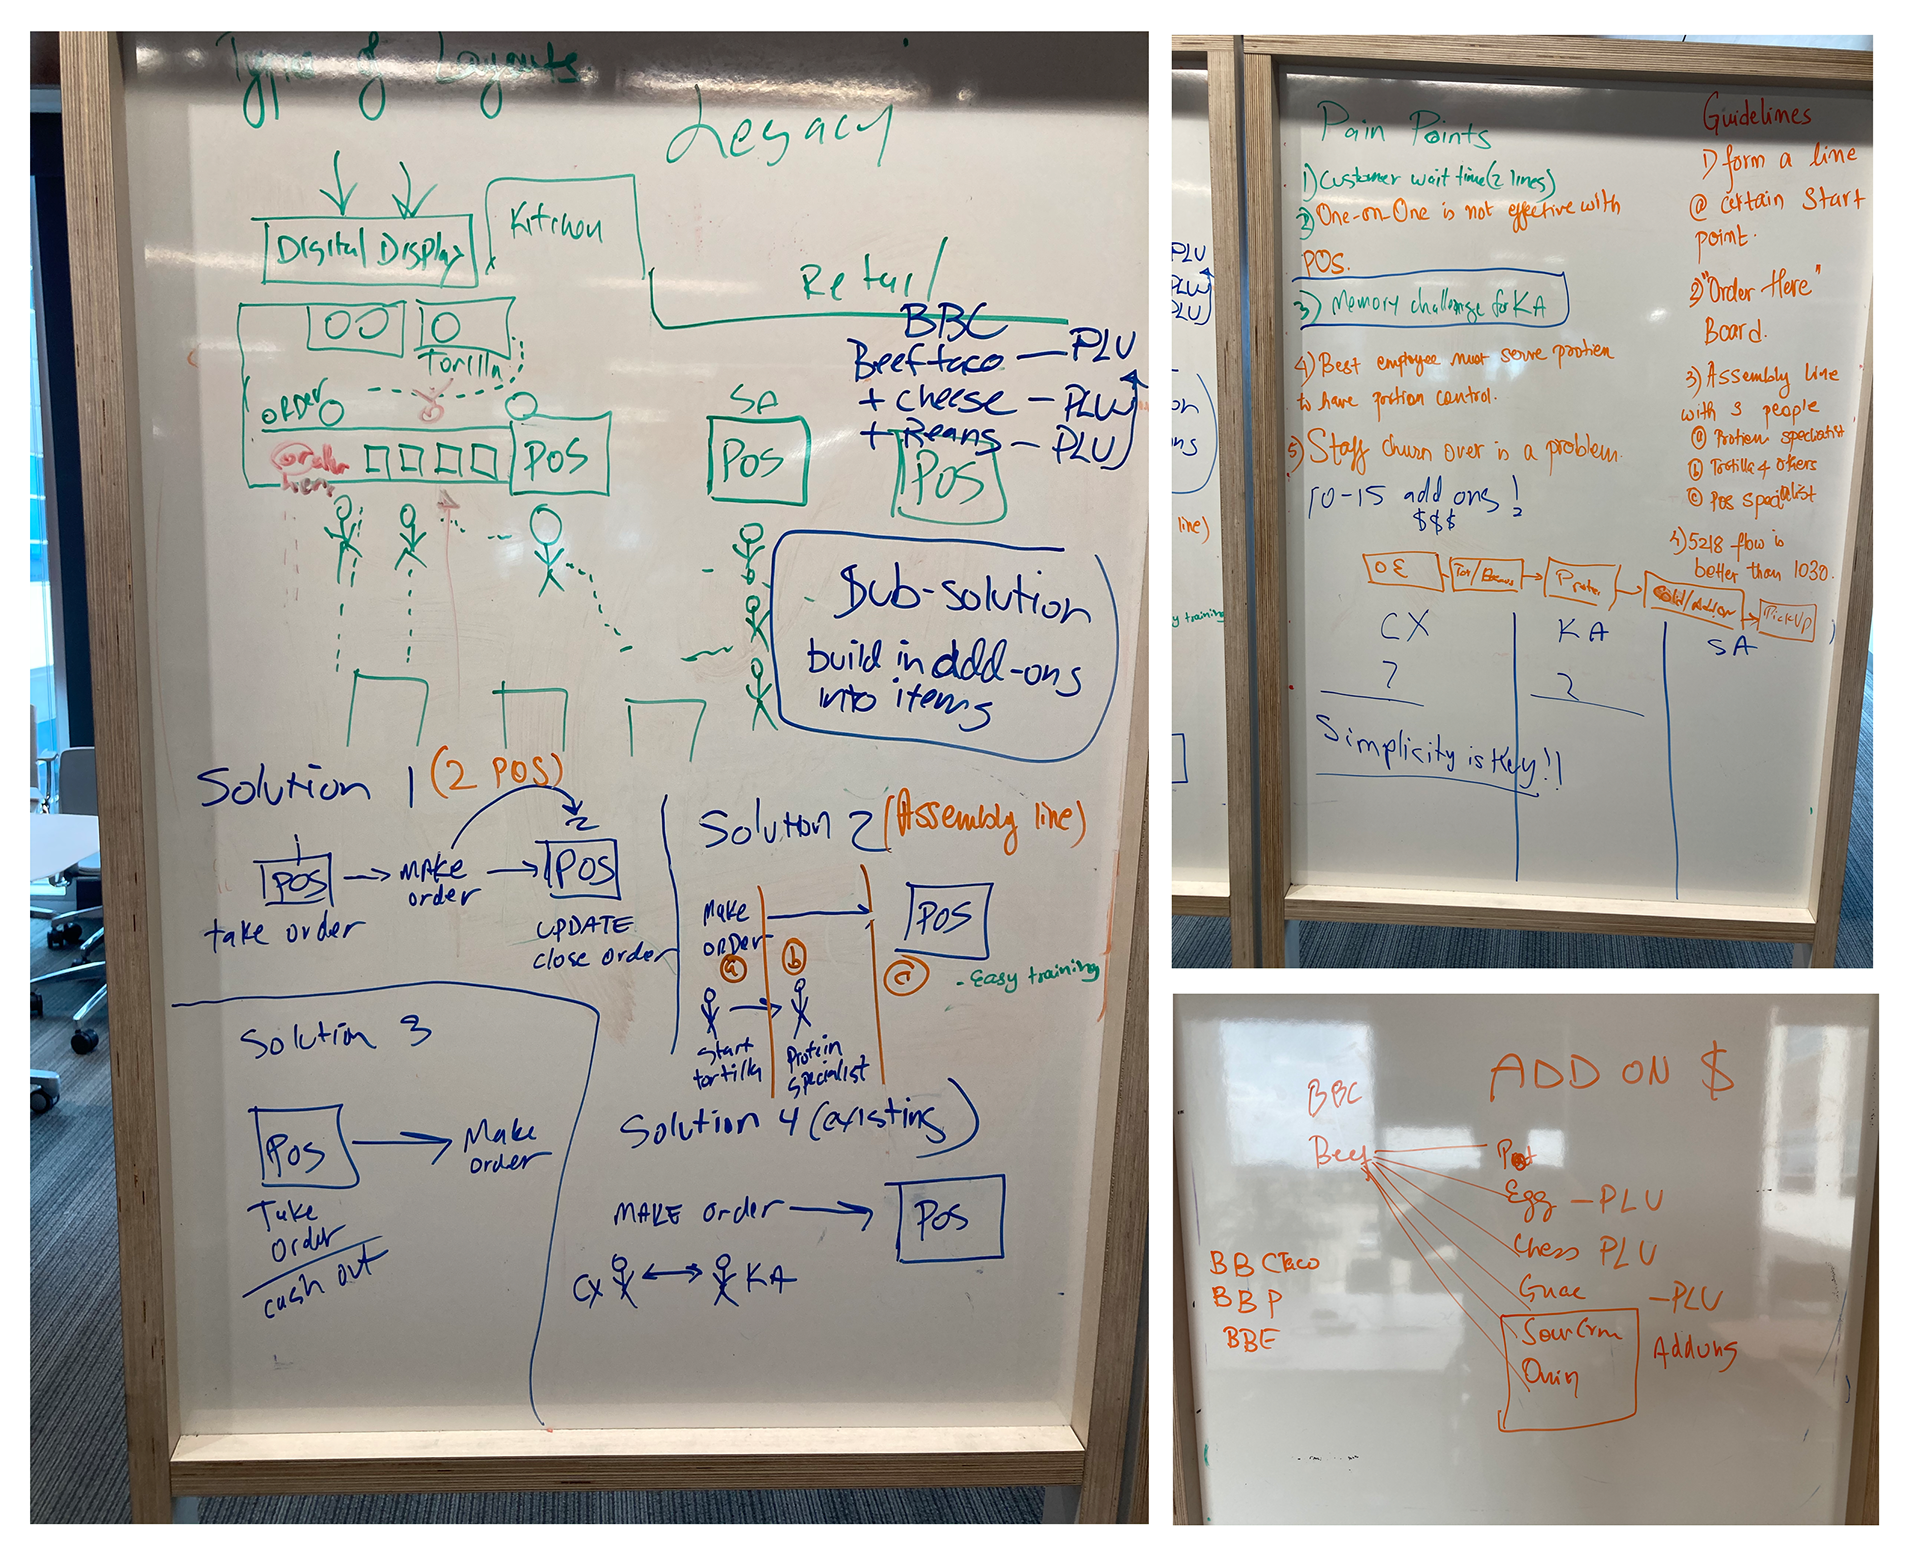 Type of Layouts
Legacy
Digital Display
Kitchen
Retail
BBC
Beef taco — PLU
+ cheese — PLU
+ Beans — PLU
Torilla
ORDER
order
here
POS
SA
POS
POS
$ub-solution
build in add-ons
into items
Solution 1 (2 POS)
1
POS
take order
MAKE
order
2
POS
UPDATE
close order
Solution 2 (Assembly line)
Make
ORDer
a
b
c
POS
- Easy training
Start
tortilla
Protein
specialist
Solution 3
POS
Make
order
Take
Order
cash out
Solution 4 (existing)
MAKE order
POS
CX
KA
PLU
PLU
PLU
on
ns
line)
y training
Pain Points
1) Customer wait time (2 lines)
2) One-on-One is not effective with
POS.
3) Memory challenge for KA
4) Best employee must serve protien
to have portion control.
5) Staff churn over is a problem.
10-15 add ons!
$$$
Guidelines
1) form a line
@ certain Start
point.
2) "Order Here"
Board.
3) Assembly line
with 3 people
a Protien specialist
b Tortilla & others
c Pos specialist
4) 5218 flow is
better than 1030.
OE
Tor/Beans
Protei
Cold/Addon
PickUp
CX
KA
SA
7
2
Simplicity is Key!!
ADD ON $
BBC
Beef
Egg — PLU
Chess PLU
Guac — PLU
Sour Crm
Onin
Addons
BBC Taco
BBP
BBE